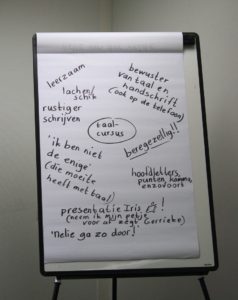 leerzaam
lachen/
schik
rustiger
schrijven
bewuster
van taal en
handschrift
(ook op de telefoon)
taal-
cursus
beregezellig!!
'ik ben niet
de enige'
(die moeite
heeft met taal)
hoofdletters,
punten, komma,
enzovoort
presentatie Iris !
(neem ik mijn petje
voor af zegt Gerrieke)
'Nelie ga zo door!'